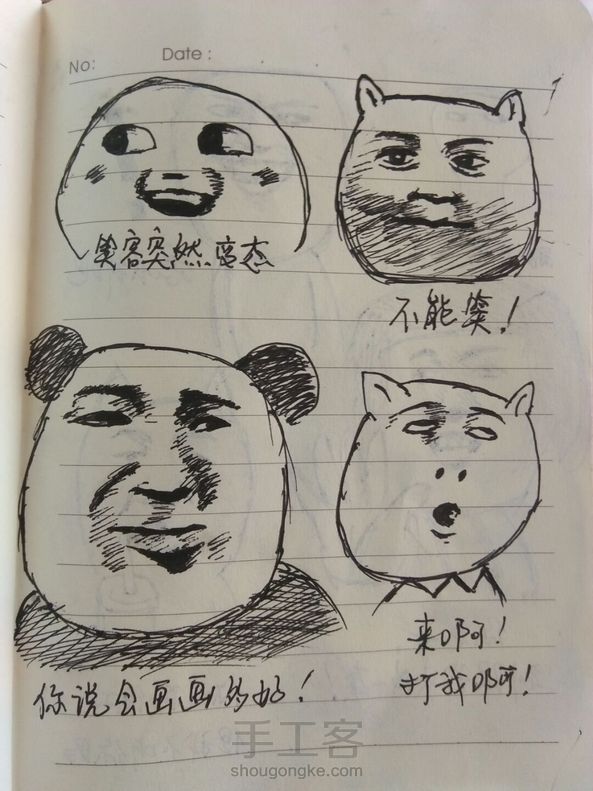 No:
Date :
笑容突然变态
不能笑!
来啊!
打我啊!
你说会画画多好!
手工客
shougongke.com